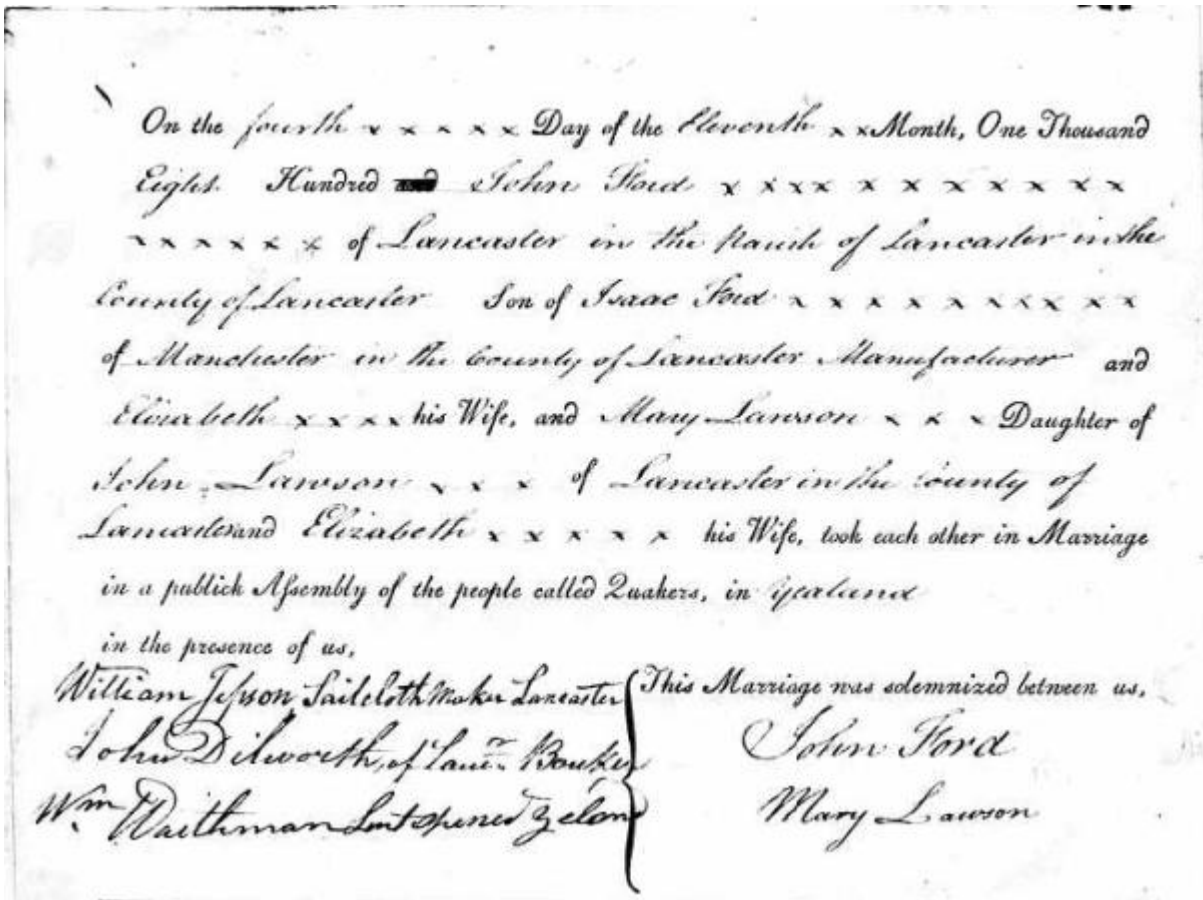 On the fourth x x x x x Day of the Eleventh x x Month, One Thousand
Eight Hundred and John Ford x x x x x x x x x x x x
x x x x x x of Lancaster in the Parish of Lancaster in the
County of Lancaster Son of Isaac Ford x x x x x x x x x x
of Manchester in the County of Lancaster Manufacturer and
Elizabeth x x x x his Wife, and Mary Lawson x x x Daughter of
John Lawson x x x of Lancaster in the County of
Lancaster and Elizabeth x x x x x his Wife, took each other in Marriage
in a publick Assembly of the people called Quakers, in Yealand
in the presence of us,
William Jepson Sailcloth Maker Lancaster
John Dilworth, of Lancr Banker
Wm Waithman
This Marriage was solemnized between us,
John Ford
Mary Lawson